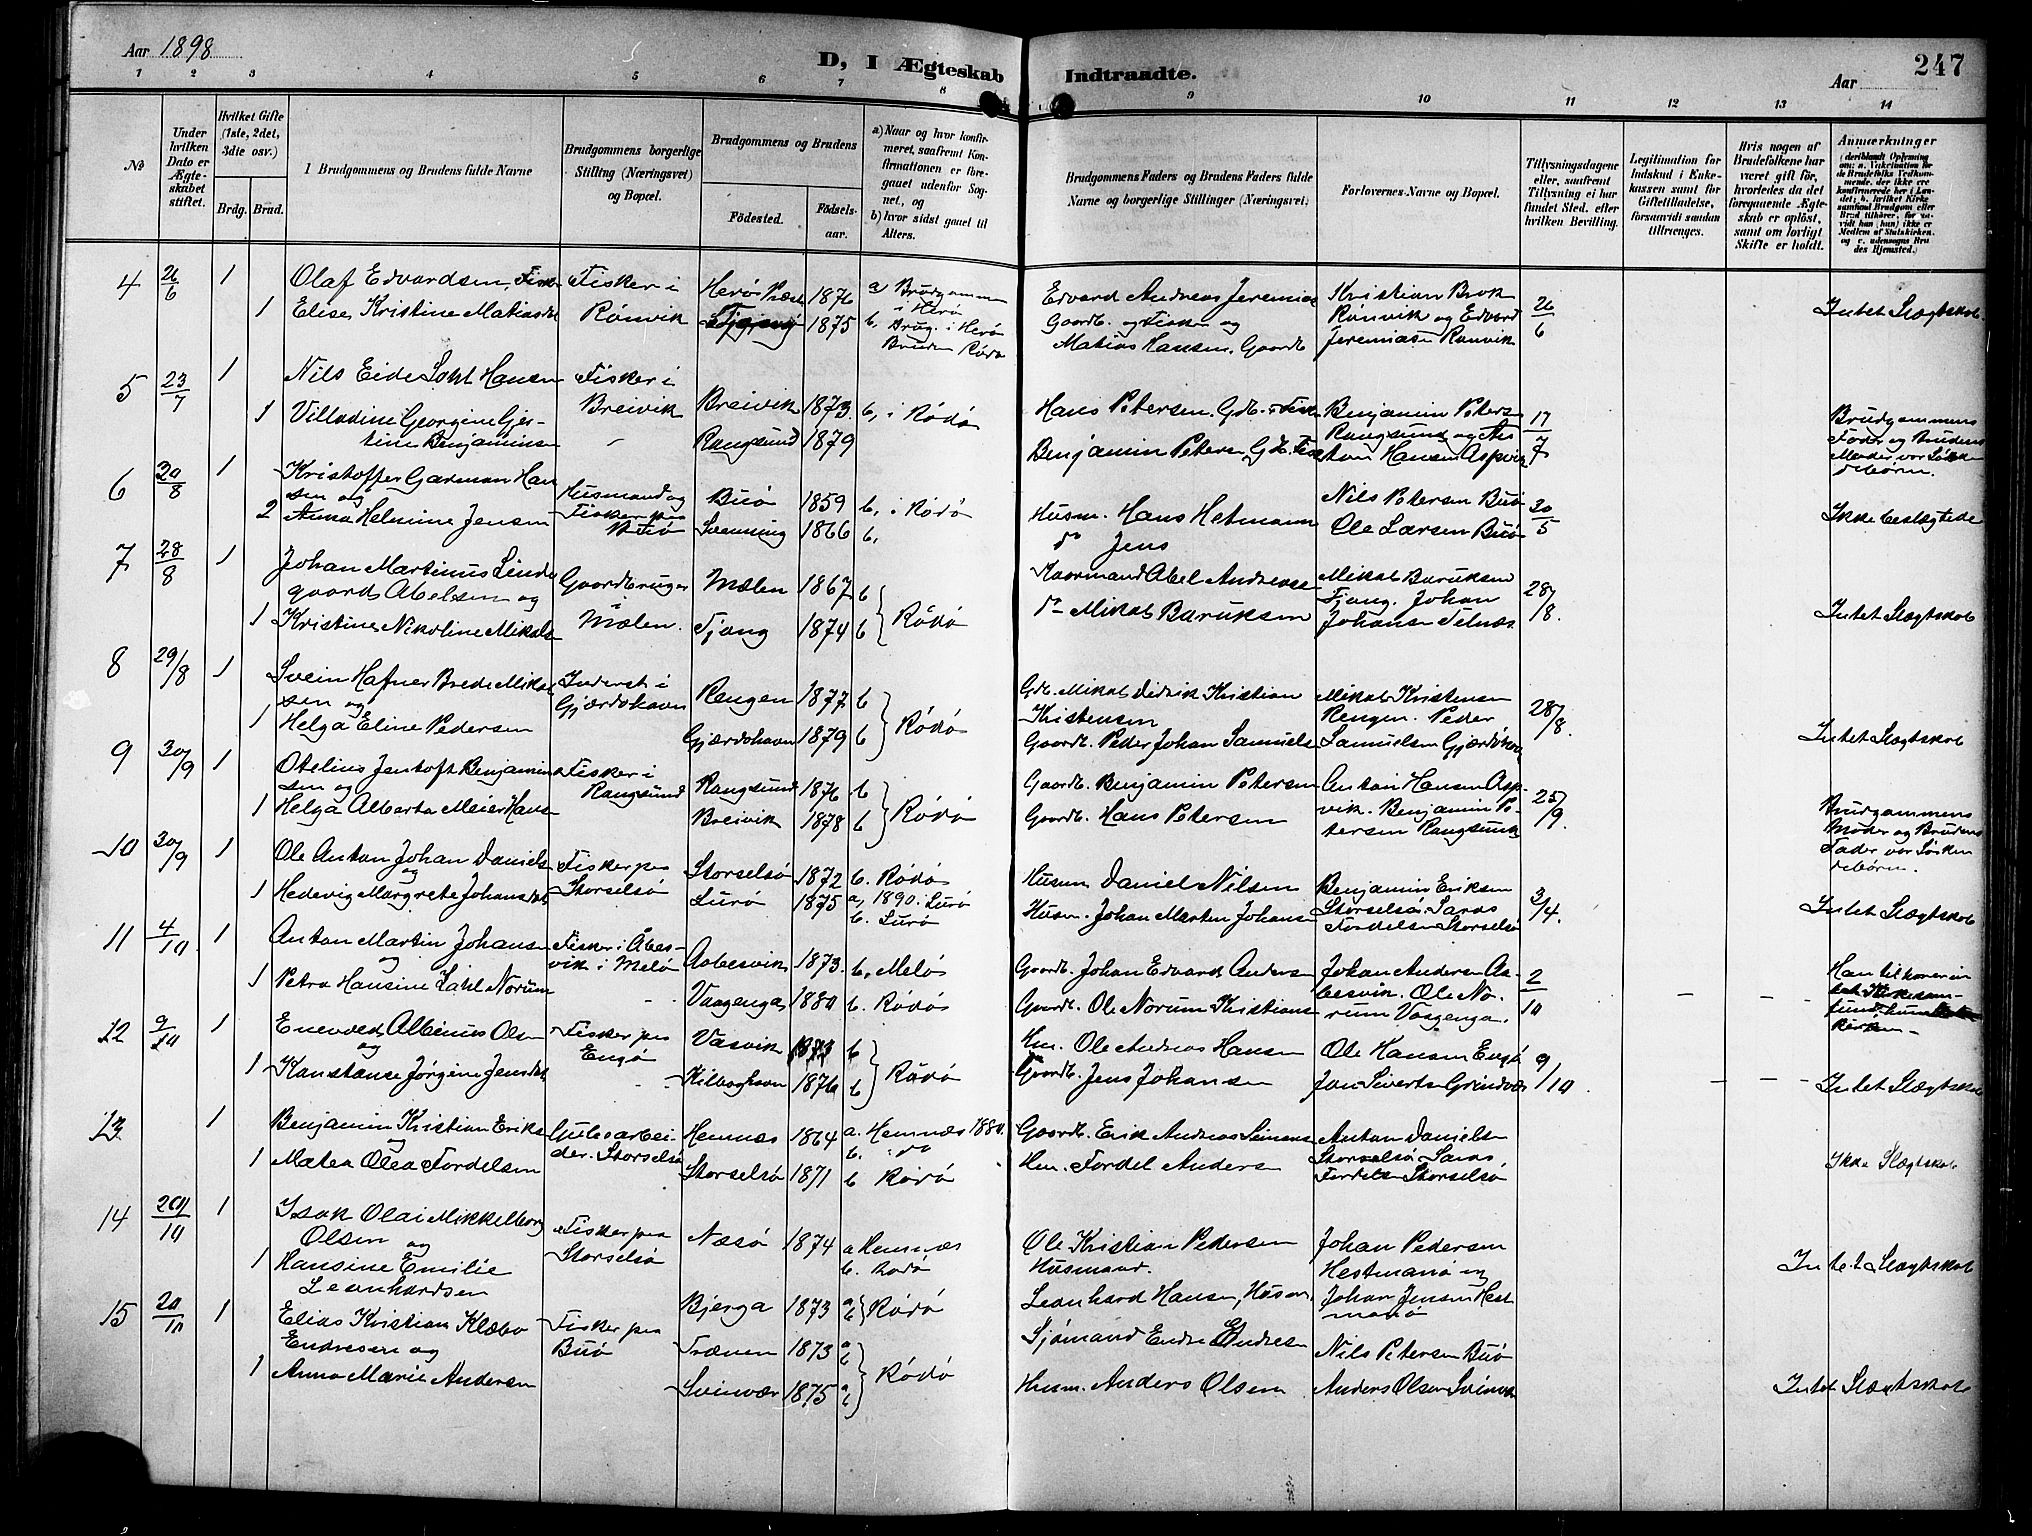 Aar 1898
D, I Ægteskab Indtraadte.
247
Aar
1 2 3 4 5 6 7 8 9 10 11 12 13 14
No
Under hvilken Dato er Ægteskabet stiftet.
Hvilket Gifte (1ste, 2det, 3die osv.)
Brdg. Brud.
Brudgommens og Brudens fulde Navne
Brudgommens borgerlige Stilling (Næringsvei) og Bopæl.
Brudgommens og Brudens
Fødested.
Fødselsaar.
a) Naar og hvor konfirmeret, saafremt Konfirmationen er foregaaet udenfor Sognet, og
b) hvor sidst gaaet til Alters.
Brudgommens Faders og Brudens Faders fulde Navne og borgerlige Stillinger (Næringsvei)
Forlovernes Navne og Bopæl.
Tillysningsdagene eller, saafremt Tillysning ei har fundet Sted, efter hvilken Bevilling.
Legitimation for Indskud i Enkekassen samt for Giftetilladelse, forsaavidt saadan tiltrænges.
Hvis nogen af Brudefolkene har været gift før, hvorledes da det foregaaende Ægteskab er opløst, samt om lovligt Skifte er holdt.
Anmærkninger
4 26/6 1 Olaf Edvardsen, Fisker Fisker i Herø Præst 1876 a Brudgommen Edvard Andreas Jeremias Kristian Brok 26/6
1 Elise Kristine Matiasdat Rønvik 1875 i Herø Gaardb. og Fisker og Rønvik og Edvard Intet Slægtskab
b, Brug. i Herø Matias Hansen, Gaardb Jeremiasen Rønvik
Bruden Rødø
5 23/7 1 Nils Eide Dahl Hansen Fisker i Breivik 1873 b, i Rødø Hans Petersen, Gdb. & Fisk Benjamin Peters 17/7 Brudgommens
1 Villadine Georgine Gjertine Benjaminsen Breivik Rangsund 1879 Benjamin Petersen Gdb. Fisk Rangsund og Anton Hansen Aspvik Fader og Brudens Moder var Søskendebørn.
6 20/8 1 Kristoffer Garman Hansen og Husmand og Buø 1859 b, i Rødø Husm. Hans Hetmann Nils Petersen Buø 30/5
2 Anna Helmine Jensen Fisker paa Buø Svenning 1866 b, do Jens Ole Larsen Buø Ikke beslægtede
7 28/8 1 Johan Martinus Lindegaard Abelsen og Gaardbruger Mælen 1867 b Rødø Gaarmand Abel Andreas Mikal Baruksen 28/8
1 Kristine Nikoline Mikals Mælen. Tjong 1874 b do Mikal Baruksen Tjong. Johan Johansen Telnes Intet Slægtskab
8 29/8 1 Svein Hafner Brede Mikalsen og Inderst i Rangen 1877 b Rødø Gdb. Mikal Didrik Kristian Kristensen Mikal Kristensen 28/8
1 Helga Eline Pedersen Gjærdshavn Gjærdshavn 1879 b Gaardb. Peder Johan Samuels Rengen. Peder Samuelsen Gjærdshavn Intet Slægtskab
9 30/9 1 Otelius Jentoft Benjaminsen og Fisker i Rangsund 1876 b Rødø Gaardb. Benjamin Petersen Anton Hansen Aspvik. 25/9
1 Helga Alberta Meier Hans Rangsund Breivik 1878 b Gaardb. Hans Petersen Benjamin Petersen Rangsund Brudgommens Moder og Brudens Fader var Søskendebørn.
10 30/9 1 Ole Anton Johan Daniels og Fisker paa Storselsø 1872 b. Rødø Husm Daniel Nilsen Benjamin Eriksen 3/4
1 Hedevig Margrete Johansdat Storselsø Lurø 1875 a, 1890 i Lurø Husm. Johan Martin Johansen Storselsø. Fordelsen Storselsø Intet Slægtskab
b. Lurø
11 4/10 1 Anton Martin Johansen og Fisker i Åbesvik i Melø Aabesvik 1873. b, Melø Gaardb. Johan Edvard Anders Johan Andersen Aabesvik. Ole Norum Vaagenga. 2/10
1 Petra Hansine Dahl Norum Vaagenga 1880 b. Rødø Gaardb. Ole Norum Kristians – –
12 9/10 1 Enevold Albinus Olsen og Fisker paa Engø Vasvik 1873 b Rødø Hm. Ole Andreas Hansen Ole Hansen Engø 9/10
1 Kanstanse Jørgine Jensdat Kilboghavn 1876 b Gaardb. Jens Johansen Jon Sivertsen Grindvik – – Intet Slægtskab
13 1 Benjamin Kristian Eriks og Gulesarbeider. Storselsø Hemnæs 1864 a. Hemnæs 1880. Gaardb. Erik Andreas Simons Anton Daniels Storselsø
1 Matea Olea Fordelsen Storselsø 1871 b. do b Rødø Hm. Fordel Anders Fordelsen Storselsø Ikke Slægtskab
14 20/10 1 Isak Olai Mikkelborg Olsen og Fisker paa Næsø 1874 a Hemnæs Ole Kristian Pedersen Johan Pedersen
1 Hansine Emilie Leonhardsen Storselsø b. Rødø Husmand. Hestmanø og Intet Slægtskab
Bjerga 1873 a b Rødø Leonhard Hansen, Husm. Johan Jensen Hestmanø
15 20/10 1 Elias Kristian Klæbo Endresen og Fisker paa Buø Trænen 1873 a b Rødø Sjømand Endre Endresen Nils Petersen Buø
1 Anna Marie Andersen Svinvær 1875 a b Husm. Anders Olsen Anders Olsen Svinvær Intet Slægtskab